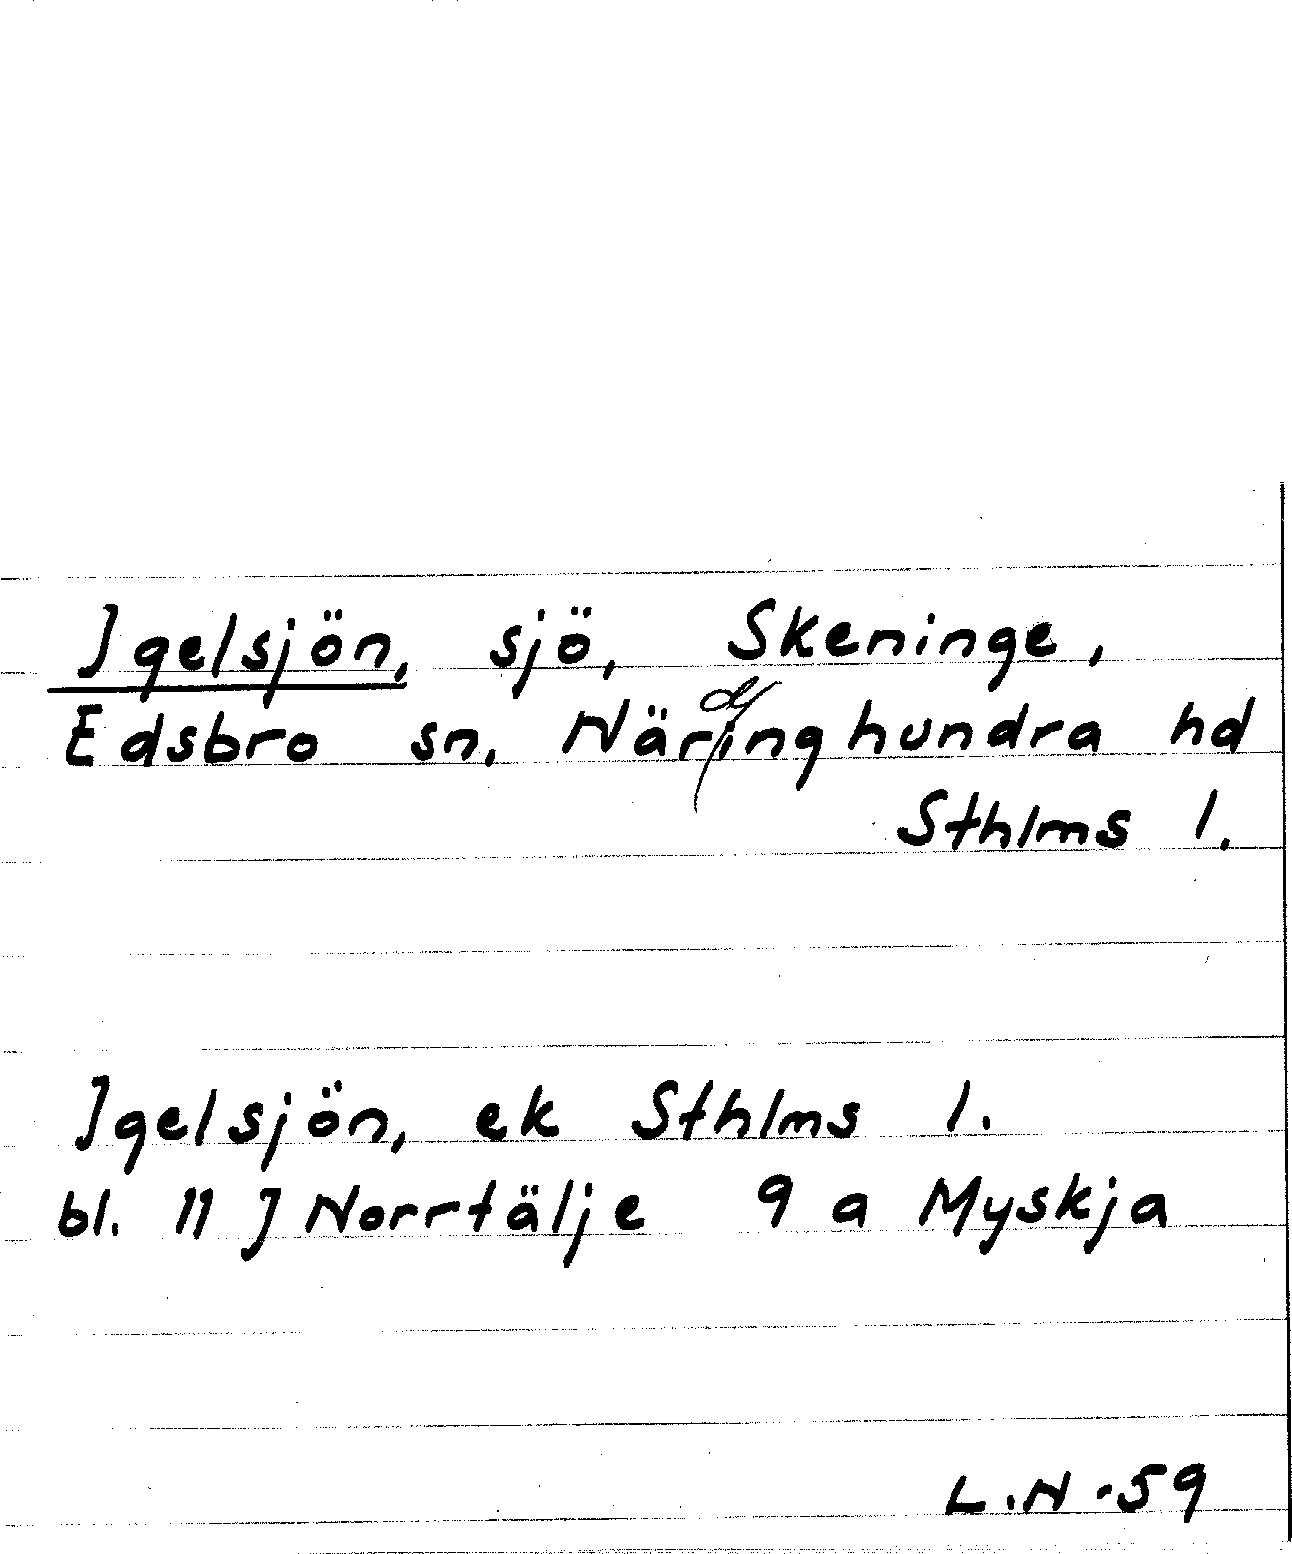 Igelsjön, sjö, Skeninge,
Edsbro sn, Näringhundra hd
Sthlms l.
Igelsjön, ek Sthlms l.
bl. 11 J Norrtälje 9 a Myskja
L.N -59